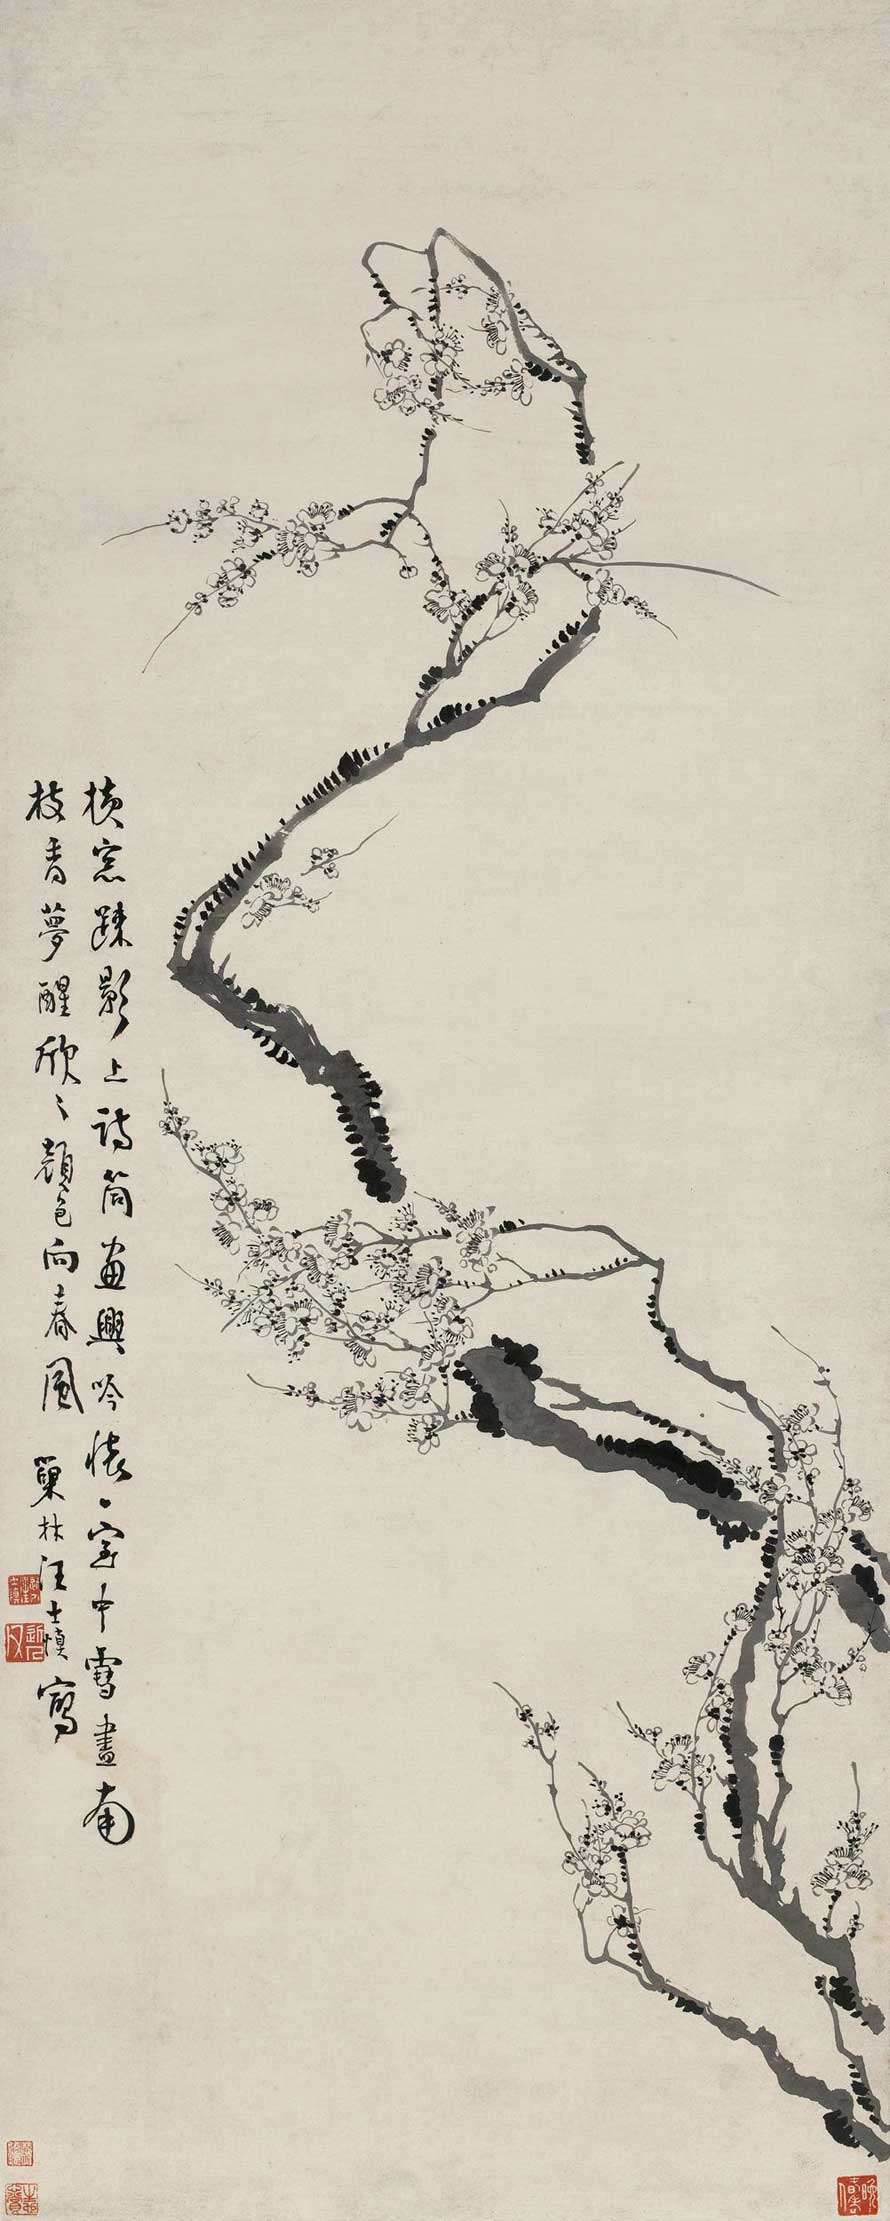 橫窓疎影上詩筒畫興吟懷〻室中雪盡南
枝香夢醒欣〻顏色向春風 巢林汪士慎寫